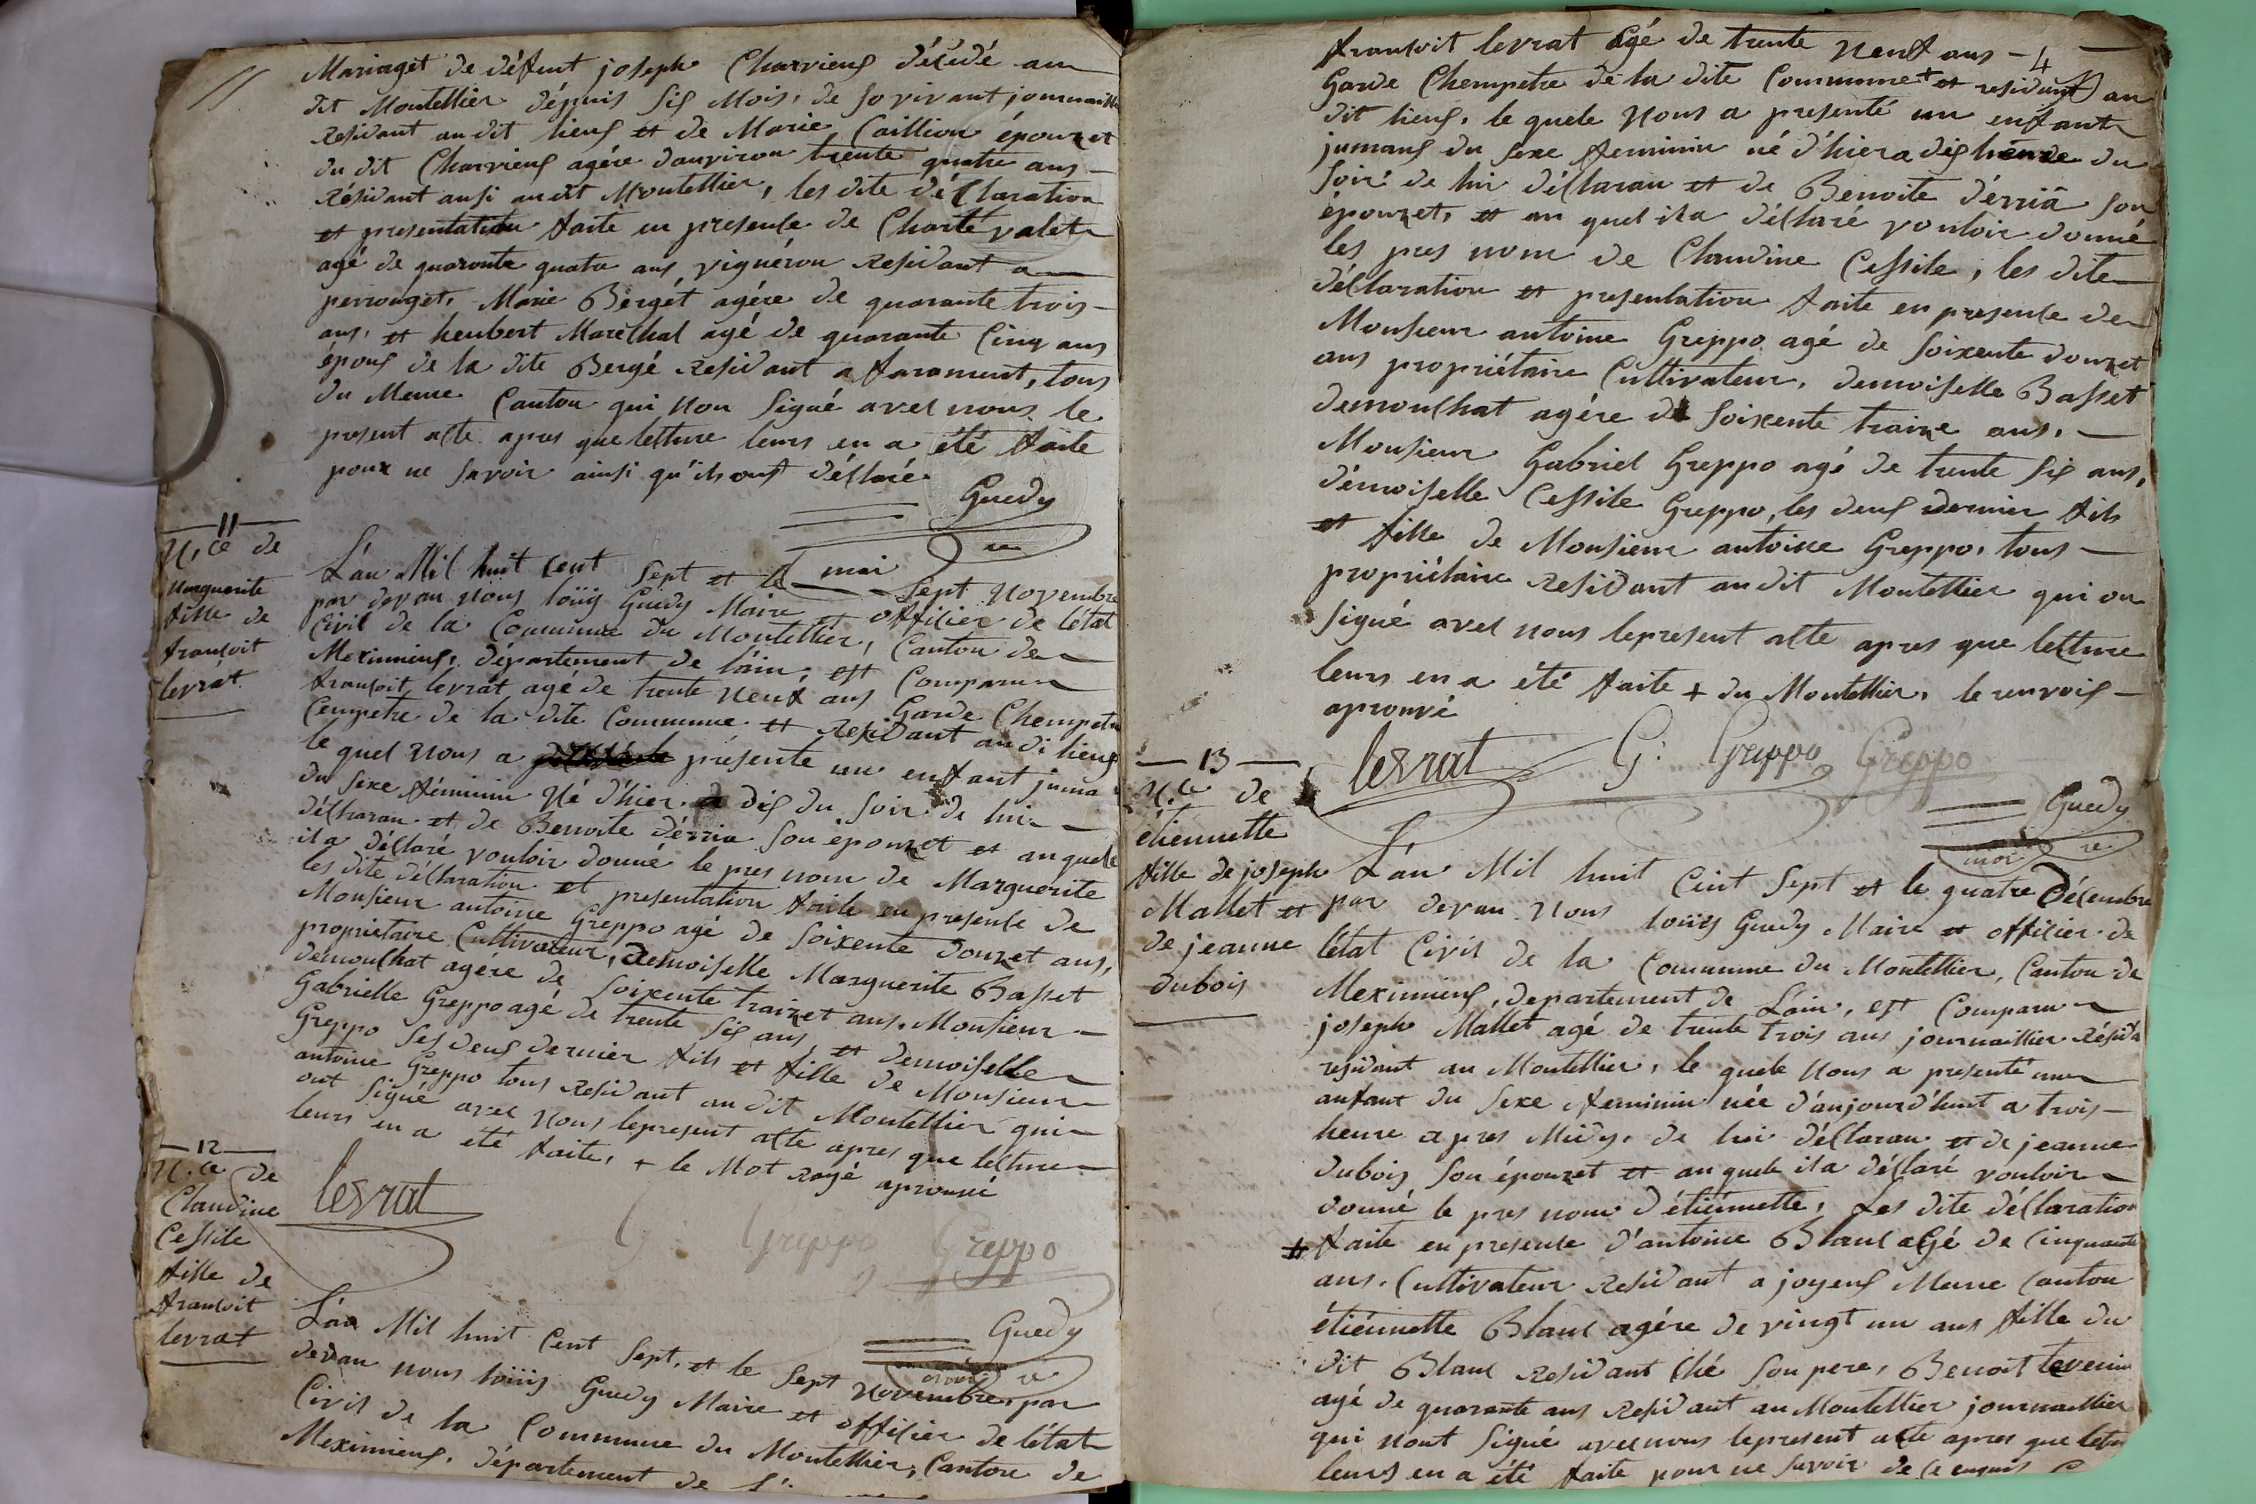 Mariaget de défunt joseph Charrieuf décédé au
dit Montellier dépuis sis Mois, de so vivant journaillé
Résidant audit lieuf et de Marie Caillion épouzet
du dit Charrieuf agére dauviron trente quatre ans
Résidant ausi audit Montellier, les dite déClaration
et presentation faite en presense de Charle valet
agé de quaronte quatre ans vignéron Residant a
perrouget, Marie Bergét agére de quarante trois
ans, et heubert Maréchal agé de quarante Cinq ans
épouf de la dite Bergé Residant a farament, tous
du Meme Canton qui Non Signé avec nous le
present acte apres que lecture leurs en a été faite
pour ne savoir ainsi qu'ils ont déclaré
Guedy
mai re
11
N.ce de
Marguerite
fille de
fransoit
levrat
L'an Mil huit Cent Sept et le Sept Novembre
par devan nous loüis Guedy Maire et offisier de l'état
Civil de la Commune du Montellier, Canton de
Meximieuf, département de l'ain, est Comparu
fransoit levrat agé de trente neuf ans Garde Chempetre
Cempetre de la dite Commune et Residant audi lieuf
le quel nous a présente un enfant juma
du sexe féminin Né d'hier a dis du soir de lui
déClaran et de Benoite dérria son épouzet et au quele
il a déClaré vouloir donné le pres nom de Marguerite
les dite déClaration et presentation faite en presense de
Monsieur antoine Greppo agé de soixente douzet ans,
propriétaire Cultivateur, demoiselle Marguerite Basset
demouchat agére de soixente traizet ans, Monsieur
Gabrielle Greppo agé de trente sis ans, et demoiselle
Greppo ses deuf dernier fils et fille de Monsieur
antoine Greppo tous Residant au dit Montellier qui
ont signé avec nous lepresent acte apres que lecture
leurs en a été faite, + le Mot Rayé aprouvé
levrat
G Greppo Greppo
Guedy
maire
12
N.ce de
Claudine
Cessile
fille de
fransoit
levrat
L'an Mil huit Cent Sept, et le Sept Novembre par
devan nous loüis Guedy Maire et offisier de l'état
Civil de la Commune du Montellier, Canton de
Meximieuf, département de l'
fransoit levrat agé de trente neuf ans - 4
Garde Chempetre de la dite Commune + et residant au
dit lieuf, le quele Nous a presenté un enfant
jumauf du sexe feminin né d'hier a dis heure du
soir de lui déClaran et de Benoite dérria son
épouzet, et au quel il a déClaré vouloir donné
les pres nom de Claudine Cessile, les dite
déClaration et presentation faite en presense de
Monsieur antoine Greppo agé de soixente douzet
ans propriétaire Cultivateur, demoiselle Basset
demouchat agére de soixente traize ans,
Monsieur Gabriel Greppo agé de trente sis ans,
démoiselle Cessile Greppo, les deuf dernier fils
et fille de Monsieur antoine Greppo, tous
propriétaire Residant au dit Montellier qui on
signé avec nous lepresent acte apres que lecture
leurs en a été faite + du Montellier, le renvois
aprouvé
levrat G. Greppo Greppo
Guedy
maire
13
N.ce de
étiennette
fille de joseph
Mallet et
de jeanne
dubois
L'an Mil huit Cent Sept et le quatre Décembre
par devan Nous loüis Guedy Maire et offisier de
l'état Civil de la Commune du Montellier, Canton de
Meximieuf, departement de L'ain, est Comparu
joseph Mallet agé de trente trois ans journaillier Résida
residant au Montellier, le quele nous a presenté un
anfant du sexe feminin née d'aujourd'huit a trois
heure apres Midy, de lui déClaran et de jeanne
dubois son épouzet et au quele il a déClaré vouloir
donné le pres nom d'étiénnette, Les dite déClaration
faite en presense d'antoine Blanc agé de Cinquante
ans, Cultivateur Residant a joyeuf Meme Canton
étiénnette Blanc agére de vingt un ans fille du
dit Blanc Residant Ché son pere, Benoit
agé de quarante ans Residant au Montellier journaillier
qui nont signé avec nous lepresent acte apres que
leurs en a été faite pour ne savoir de Ce enquis